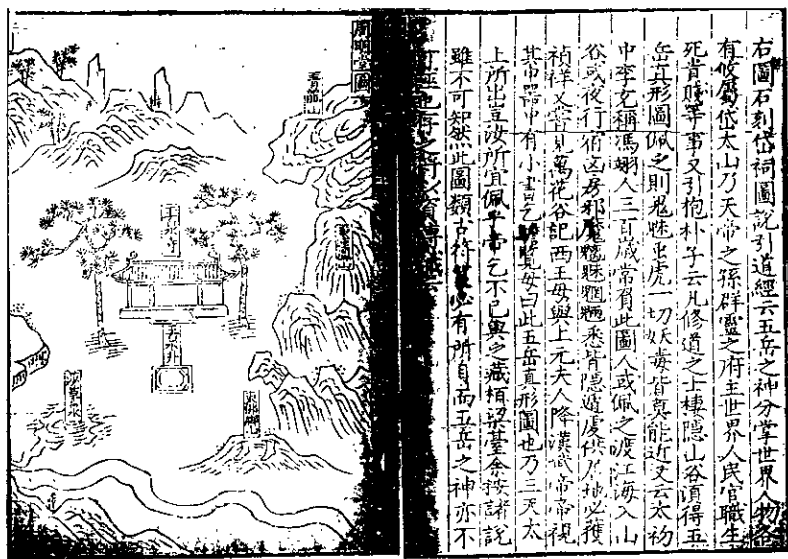 右圖石刻岱祠圖說引道經云五岳之神分掌世界人物各
有攸屬岱太山乃天帝之孫群靈之府主世界人民官職生
死貴賤等事又引抱朴子云凡修道之士棲隱山谷須得五
岳真形圖佩之則鬼魅虫虎一切妖毒皆莫能近又云太初
中李充稱馮翊人三百歲常負此圖人或佩之渡江海入山
谷或夜行宿凶房邪魔魑魅魍魎悉皆隱遁虔供居地必獲
禎祥又嘗見萬花谷記西王母與上元夫人降漢武帝帝視
其巾器中有小書乞賜覽母曰此五岳真形圖也乃三天太
上所出豈汝所宜佩乎帝乞不已與之藏栢梁臺余按諸說
雖不可知然此圖類古符篆必有所自而五岳之神亦不
周明堂圖